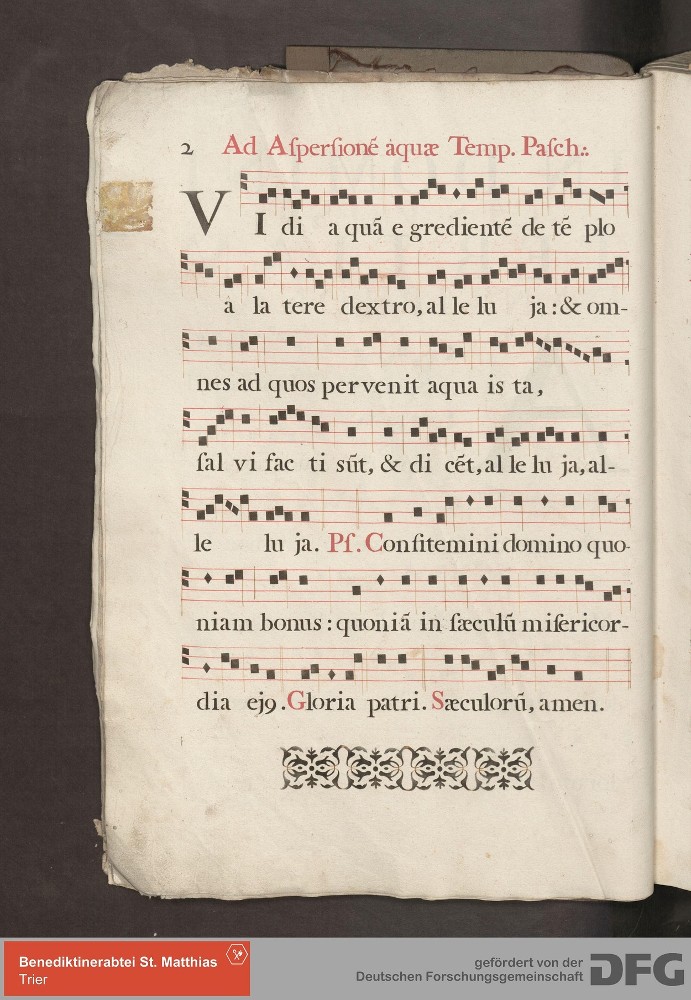 2 Ad Aſperſionē àquæ Temp. Paſch:.
VI di a quā e gredientē de tē plo
à la tere dextro, al le lu ja: & om-
nes ad quos pervenit aqua is ta,
ſal vi fac ti sūt, & di cēt, al le lu ja, al-
le lu ja. Pſ. Confitemini domino quo-
niam bonus: quoniā in ſæculū miſericor-
dia ej9. Gloria patri. Sæculorū, amen.
Benediktinerabtei St. Matthias
Trier
gefördert von der
Deutschen Forschungsgemeinschaft
DFG